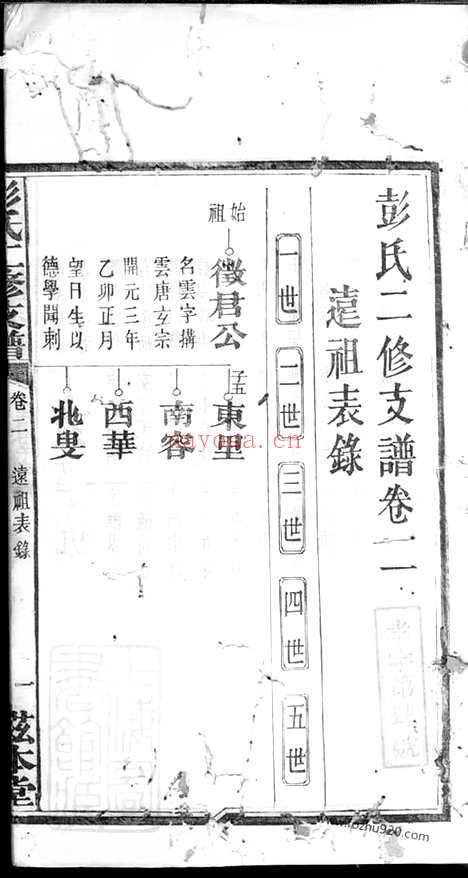 彭氏二修支譜卷二
遠祖表錄
一世
二世
三世
四世
五世
始祖
徵君公
名雲字搆
雲唐玄宗
開元三年
乙卯正月
望日生以
德學聞刺
子五
東里
南容
西華
北叟
彭氏二修支譜
卷二
遠祖表錄
一
茲本堂
nayona.cn
www.kozhu920.com